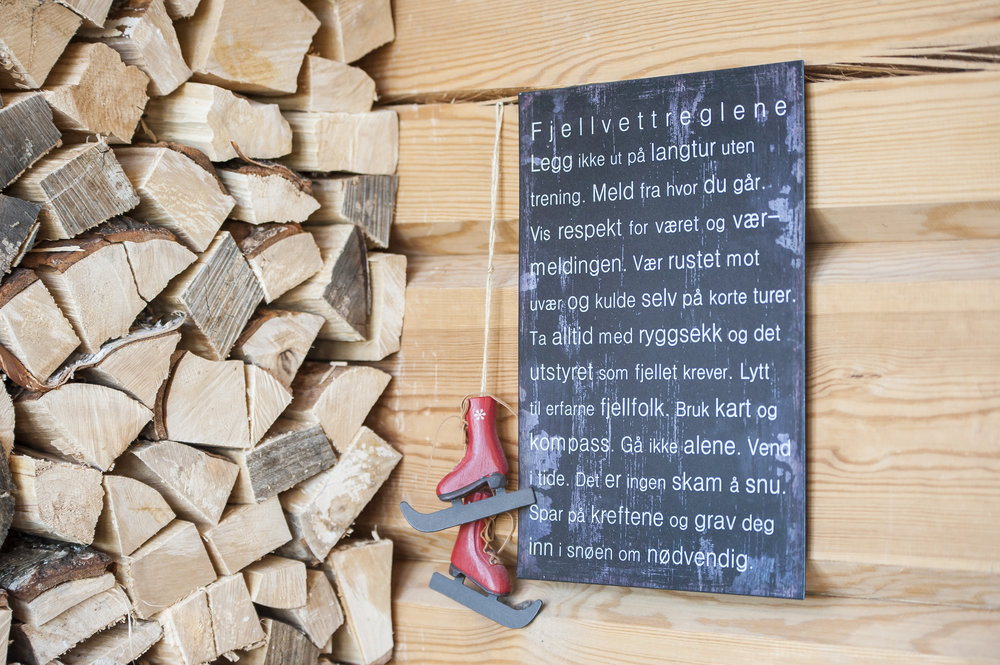 Fjellvettreglene
Legg ikke ut på langtur uten
trening. Meld fra hvor du går.
Vis respekt for været og vær–
meldingen. Vær rustet mot
uvær og kulde selv på korte turer.
Ta alltid med ryggsekk og det
utstyret som fjellet krever. Lytt
til erfarne fjellfolk. Bruk kart og
kompass. Gå ikke alene. Vend
i tide. Det er ingen skam å snu.
Spar på kreftene og grav deg
inn i snøen om nødvendig.